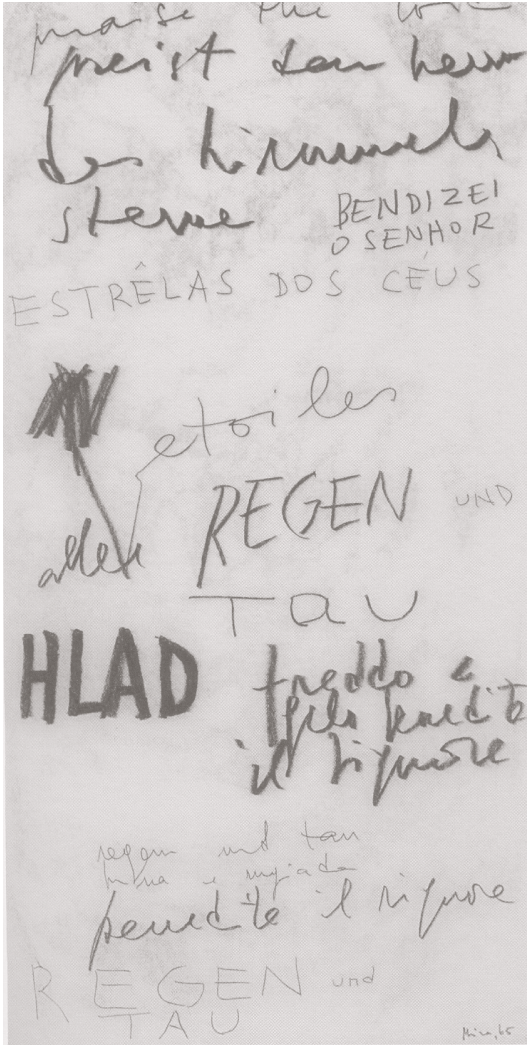 praise the
preist den herrn
des himmels
sterne
BENDIZEI
O SENHOR
ESTRÊLAS DOS CÉUS
etoiles
alle
REGEN UND
TAU
HLAD
freddo e
gelo benedite
il signore
regen und tau
benedite il signore
REGEN und
TAU